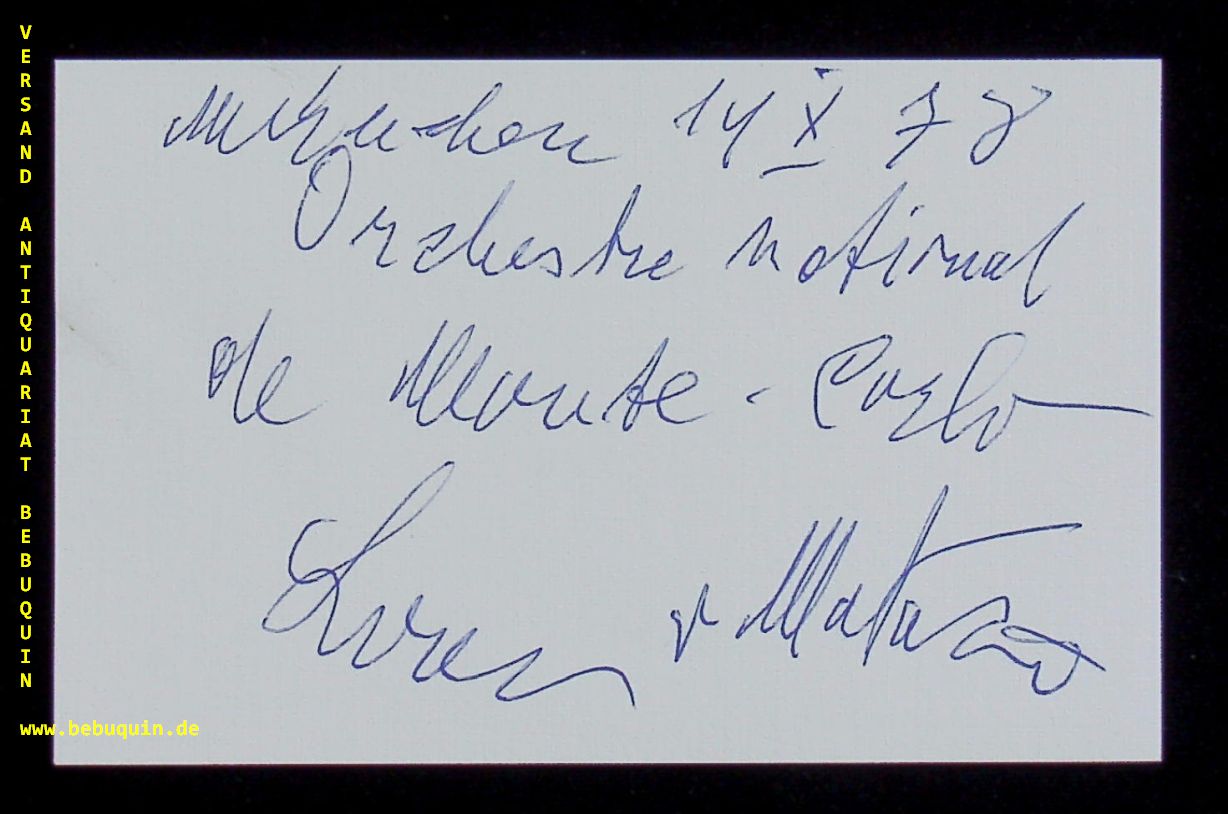 VERSAND ANTIQUARIAT BEBUQUIN
www.bebuquin.de
München 14 X 78
Orchestre national
de Monte-Carlo
Lovro v Matacic